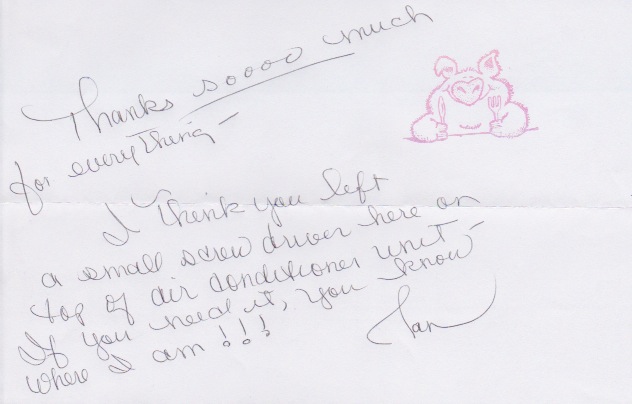 Thanks soooo much
for everything-
I think you left
a small screw driver here on
top of air conditioner unit-
If you need it, you know
where I am!!!